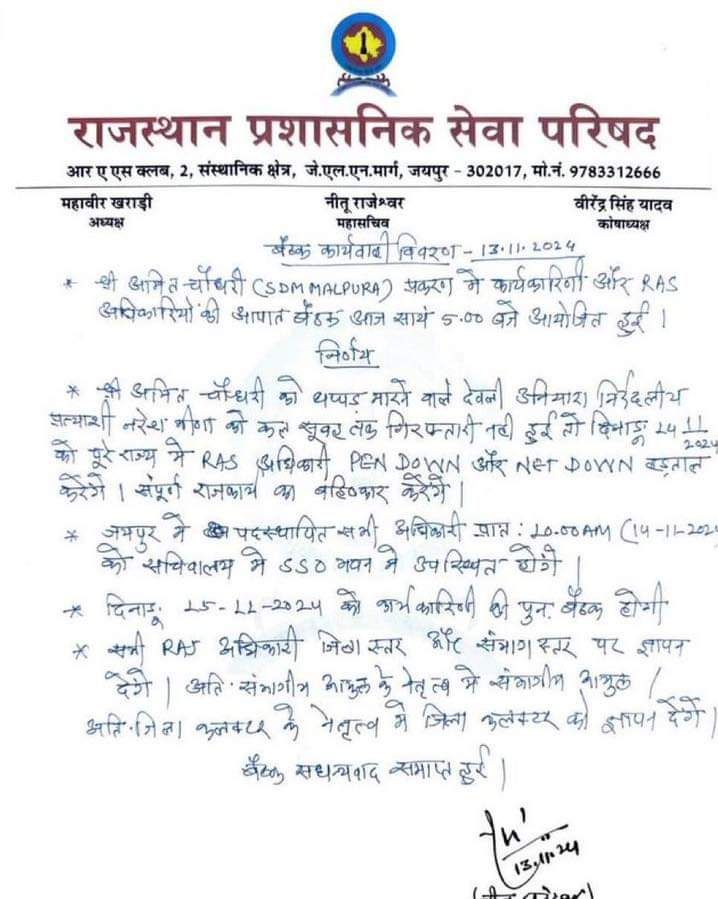 राजस्थान प्रशासनिक सेवा परिषद
आर ए एस क्लब, 2, संस्थानिक क्षेत्र, जे.एल.एन.मार्ग, जयपुर - 302017, मो.नं. 9783312666
महावीर खराड़ी नीतू राजेश्वर वीरेंद्र सिंह यादव
अध्यक्ष महासचिव कोषाध्यक्ष
बैठक कार्यवाही विवरण - 13.11.2024
* श्री अमित चौधरी (SDM MALPURA) प्रकरण में कार्यकारिणी और RAS
अधिकारियों की आपात बैठक आज सायं 5.00 बजे आयोजित हुई।
निर्णय
* श्री अमित चौधरी को थप्पड़ मारने वाले देवली उनियारा निर्दलीय
प्रत्याशी नरेश मीणा को कल सुबह तक गिरफ्तारी नहीं हुई तो दिनाङ्क 14 11
2024
को पूरे राज्य में RAS अधिकारी PEN DOWN और NET DOWN हड़ताल
करेंगे। संपूर्ण राजकार्य का बहिष्कार करेंगे।
* जयपुर में पदस्थापित सभी अधिकारी प्रात: 10.00AM (14-11-2024
को सचिवालय में SSO भवन में उपस्थित होंगे।
* दिनाङ्क 15-11-2024 को कार्यकारिणी की पुन: बैठक होगी
* सभी RAS अधिकारी जिला स्तर और संभाग स्तर पर ज्ञापन
देंगे। अति. संभागीय आयुक्त के नेतृत्व में संभागीय आयुक्त /
अति. जिला कलक्टर के नेतृत्व में जिला कलक्टर को ज्ञापन देंगे।
बैठक सधन्यवाद समाप्त हुई।
13.11.24